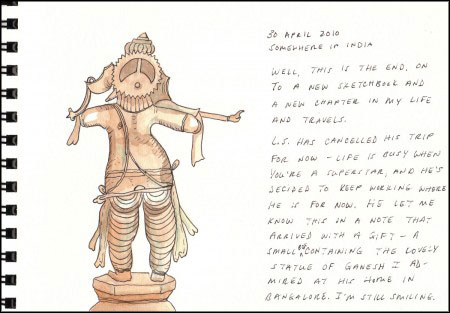 30 APRIL 2010
SOMEWHERE IN INDIA
WELL, THIS IS THE END. ON
TO A NEW SKETCHBOOK AND
A NEW CHAPTER IN MY LIFE
AND TRAVELS.
L.S. HAS CANCELLED HIS TRIP
FOR NOW – LIFE IS BUSY WHEN
YOU'RE A SUPERSTAR, AND HE'S
DECIDED TO KEEP WORKING WHERE
HE IS FOR NOW. HE LET ME
KNOW THIS IN A NOTE THAT
ARRIVED WITH A GIFT – A
SMALL BOX CONTAINING THE LOVELY
STATUE OF GANESH I AD-
MIRED AT HIS HOME IN
BANGALORE. I'M STILL SMILING.